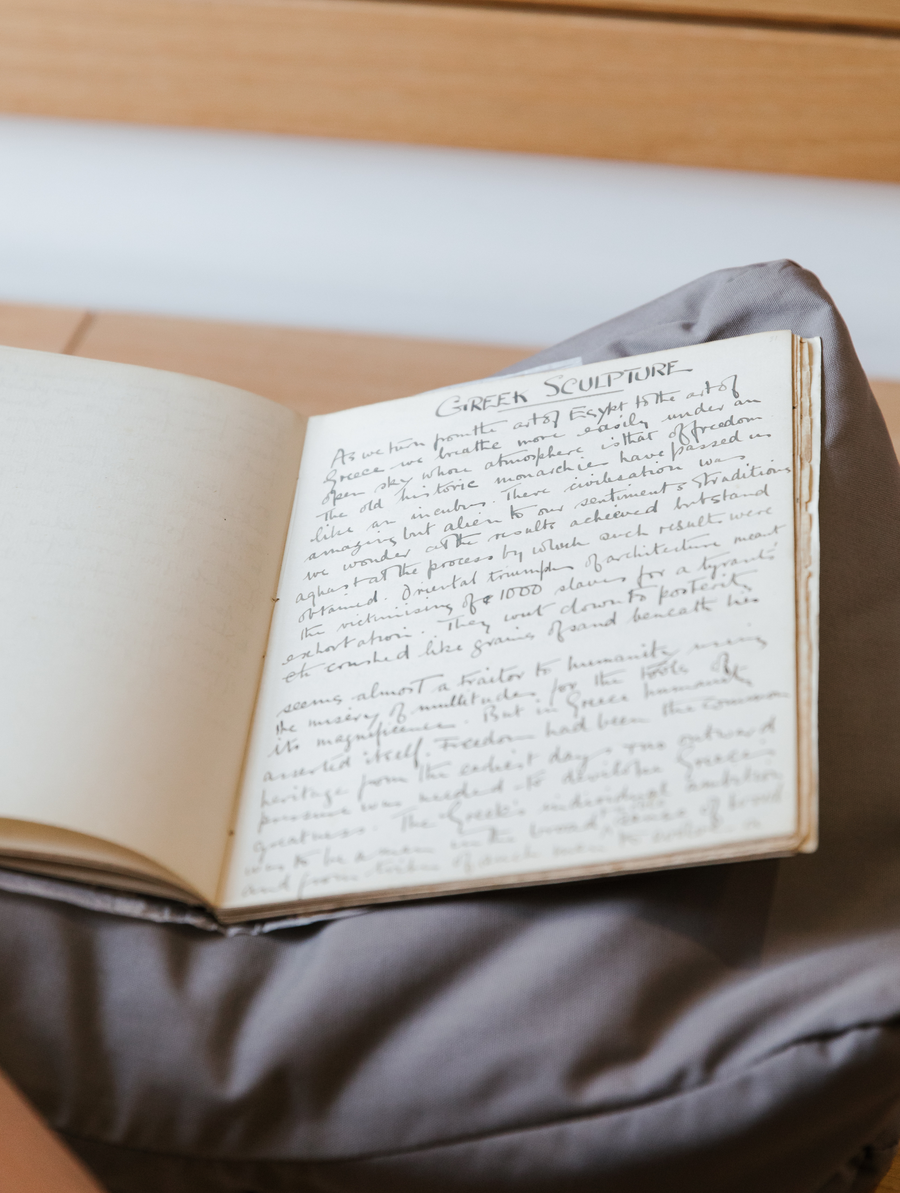 GREEK SCULPTURE
As we turn from the art of Egypt to the art of
Greece we breathe more easily under an
open sky whose atmosphere is that of freedom
The old historic monarchies have passed us
like an incubus. There civilisation was
amazing but alien to our sentiments & traditions
we wonder at the results achieved but stand
aghast at the process by which such results were
obtained. Oriental triumphs of architecture meant
the victimising of 1000 slaves for a tyrant's
exhortation. They went down to posterity
crushed like grains of sand beneath his
seems almost a traitor to humanity using
the misery of multitudes for the tools of
its magnificence. But in Greece humanity
asserted itself. Freedom had been the common
heritage from the earliest days no outward
pressure was needed to develope Greece's
greatness. The Greek's individual ambition
was to be a man in the broad sense of
and from tribes of such men to